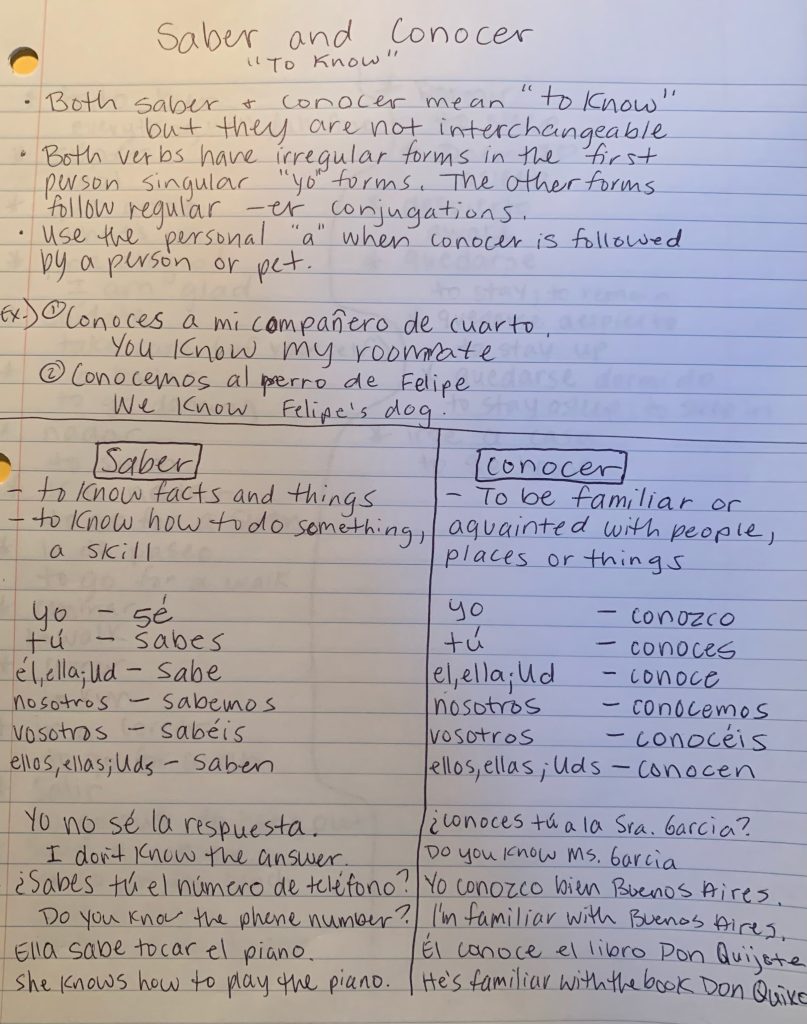 Saber and Conocer
"To Know"
• Both saber + conocer mean "to know"
but they are not interchangeable
• Both verbs have irregular forms in the first
person singular "yo" forms. The other forms
follow regular -er conjugations.
• Use the personal "a" when conocer is followed
by a person or pet.
Ex.) ① Conoces a mi compañero de cuarto.
You know my roomate
② Conocemos al perro de Felipe
We know Felipe's dog.
Saber
- to know facts and things
- to know how to do something,
a skill
yo - sé
tú - sabes
él, ella; Ud - sabe
nosotros - sabemos
vosotros - sabéis
ellos, ellas; Uds - saben
Yo no sé la respuesta.
I don't know the answer.
¿Sabes tú el número de teléfono?
Do you know the phone number?
Ella sabe tocar el piano.
She knows how to play the piano.
Conocer
- To be familiar or
aquainted with people,
places or things
yo - conozco
tú - conoces
el, ella; Ud - conoce
nosotros - conocemos
vosotros - conocéis
ellos, ellas; Uds - conocen
¿Conoces tú a la Sra. Garcia?
Do you know Ms. Garcia
Yo conozco bien Buenos Aires.
I'm familiar with Buenos Aires.
Él conoce el libro Don Quijote
He's familiar with the book Don Quixo